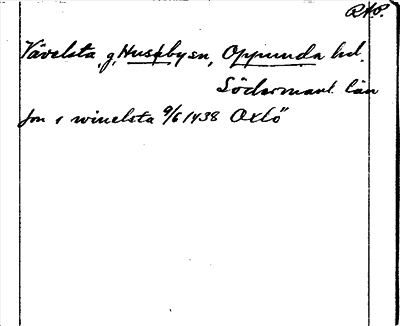 RAP.
Vävelsta, g, Husebysn, Oppunda hd.
Södermanl. län
Jon i winelsta 9/6 1438 Oxlö"